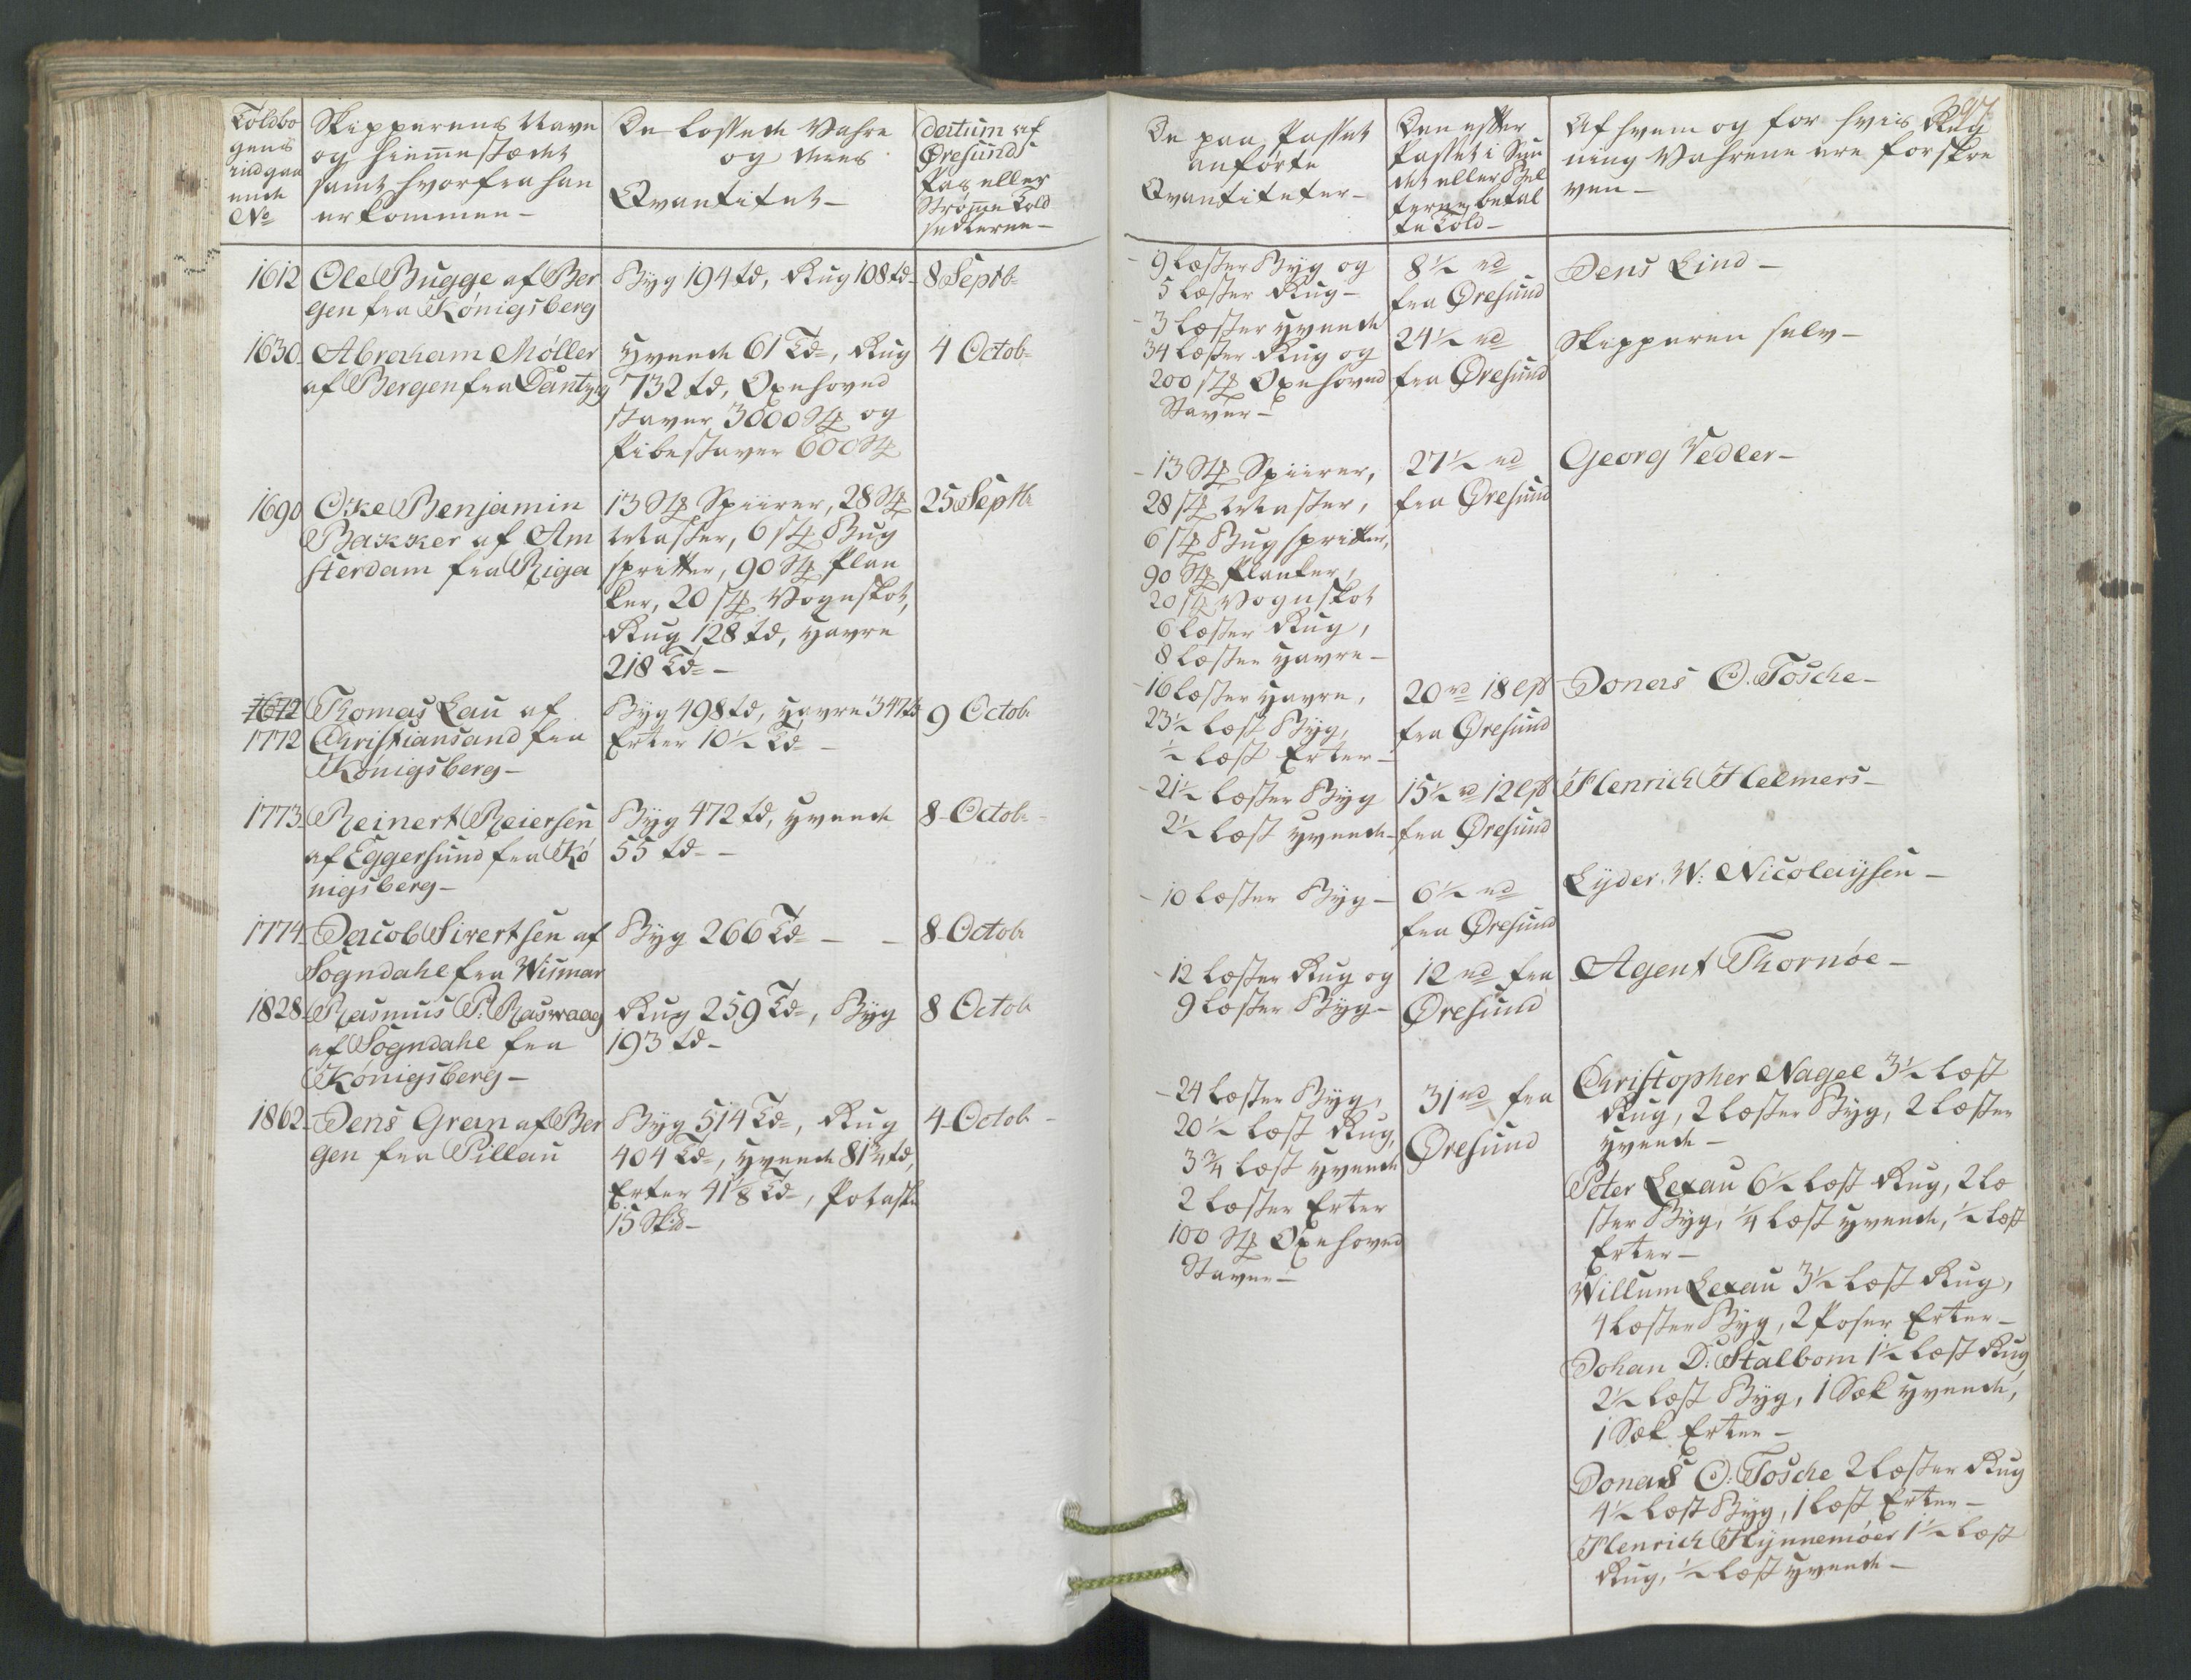 Toldbo
gens
indgaa
ende
No
Skipperens Navn
og hiemmestædet
samt hvorfra han
er kommen —
De lossede Vahre
og deres
Qvantitet —
Datum af
Øresunds
Pas eller
Strømme Told
sedlerne —
1612 Ole Bugge af Ber
gen fra Königsberg
Byg 194 td, Rug 108 td
8 Septb
1630 Abraham Møller
af Bergen fra Dantzig
Hvede 61 Td, Rug
732 td, Oxehoved
staver 3600 Stk og
Pibestaver 600 Stk
4 Octob
1690 Oke Benjamin
Bakker af Am
sterdam fra Riga
13 Stk Spiirer, 28 Stk
Master, 6 stk Bug
spritter, 90 Stk Plan
ker, 20 stk Vognskot,
Rug 128 td, Havre
218 Td —
25 Septb
1672
1772
Thomas Lau af
Christiansand fra
Königsberg —
Byg 498 td, Havre 347 td
Erter 10½ Td —
9 Octob
1773 Reinert Reiersen
af Eggersund fra Kö
nigsberg —
Byg 472 td, Hvede
55 td —
8 Octob
1774 Jacob Sivertsen af
Sogndahl fra Wismar
Byg 266 Td — —
8 Octob
1828 Rasmus P: Raswaag
af Sogndahl fra
Königsberg —
Rug 259 Td, Byg
193 td —
8 Octob
1862 Jens Gran af Ber
gen fra Pillau
Byg 514 Td, Rug
404 Td, Hvede 81¾ td,
Erter 41⅛ Td, Potaske
15 Skd —
4 Octob
De paa Passet
anførte
Qvantiteter —
Den efter
Passet i Sun
det eller Bel
terne betal
te Told —
Af hvem og for hvis Reg
ning Vahrene ere forskre
ven —
9 læster Byg og
5 læster Rug —
8½ rd
fra Øresund
Jens Lind —
3 læster Hvede
34 læster Rug og
200 stk Oxehoved
Staver —
24½ rd
fra Øresund
Skipperen selv —
13 Stk Spiirer,
28 stk Master,
6 stk Bugspritter,
90 Stk Planker,
20 stk Vognskot
6 læster Rug,
8 læster Havre —
27½ rd
fra Øresund
Georg Vedler —
16 læster Havre,
23½ læst Byg,
½ læst Erter —
20 rd 18 lβ
fra Øresund
Jonas C. Tosche —
21½ læster Byg
2½ læst Hvede —
15½ rd 12 lβ
fra Øresund
Henrich Helmers —
10 læster Byg —
6½ rd
fra Øresund
Lyder W: Nicolaysen —
12 læster Rug og
9 læster Byg —
12 rd fra
Øresund
Agent Thornøe —
24 læster Byg,
20½ læst Rug,
3¾ læst Hvede
2 læster Erter
100 Stk Oxehoved
Staver —
31 rd fra
Øresund
Christopher Nagel 3½ læst
Rug, 2 læster Byg, 2 læster
Hvede —
Peter Lexau 6½ læst Rug, 2 læ
ster Byg, ¼ læst Hvede, ½ læst
Erter —
Willum Lexau 3½ læst Rug,
4 læster Byg, 2 Poser Erter —
Johan D: Stalbom 1½ læst Rug,
2½ læst Byg, 1 Sæk Hvede,
1 Sæk Erter —
Jonas C: Tosche 2 læster Rug
4½ læst Byg, 1 læst Erter —
Henrich Hynnemöer 1½ læst
Rug, ½ læst Hvede —